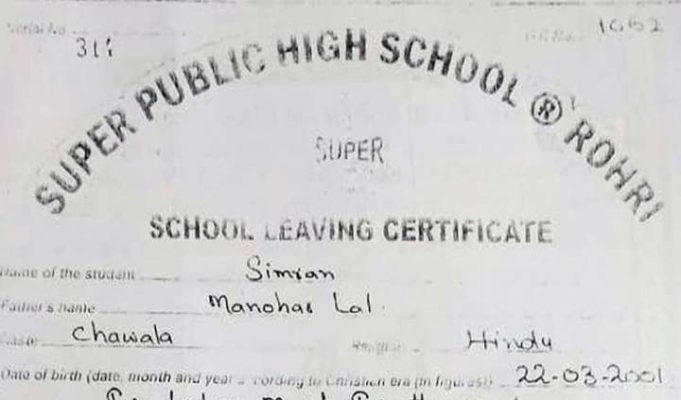 Serial No. 311 G.R.No. 1662
SUPER PUBLIC HIGH SCHOOL ® ROHRI
SUPER
SCHOOL LEAVING CERTIFICATE
Name of the student Simran
Father's name Manohar Lal.
Caste Chawala Religion Hindu
Date of birth (date, month and year according to Christien era (in figures)) 22-03-2001